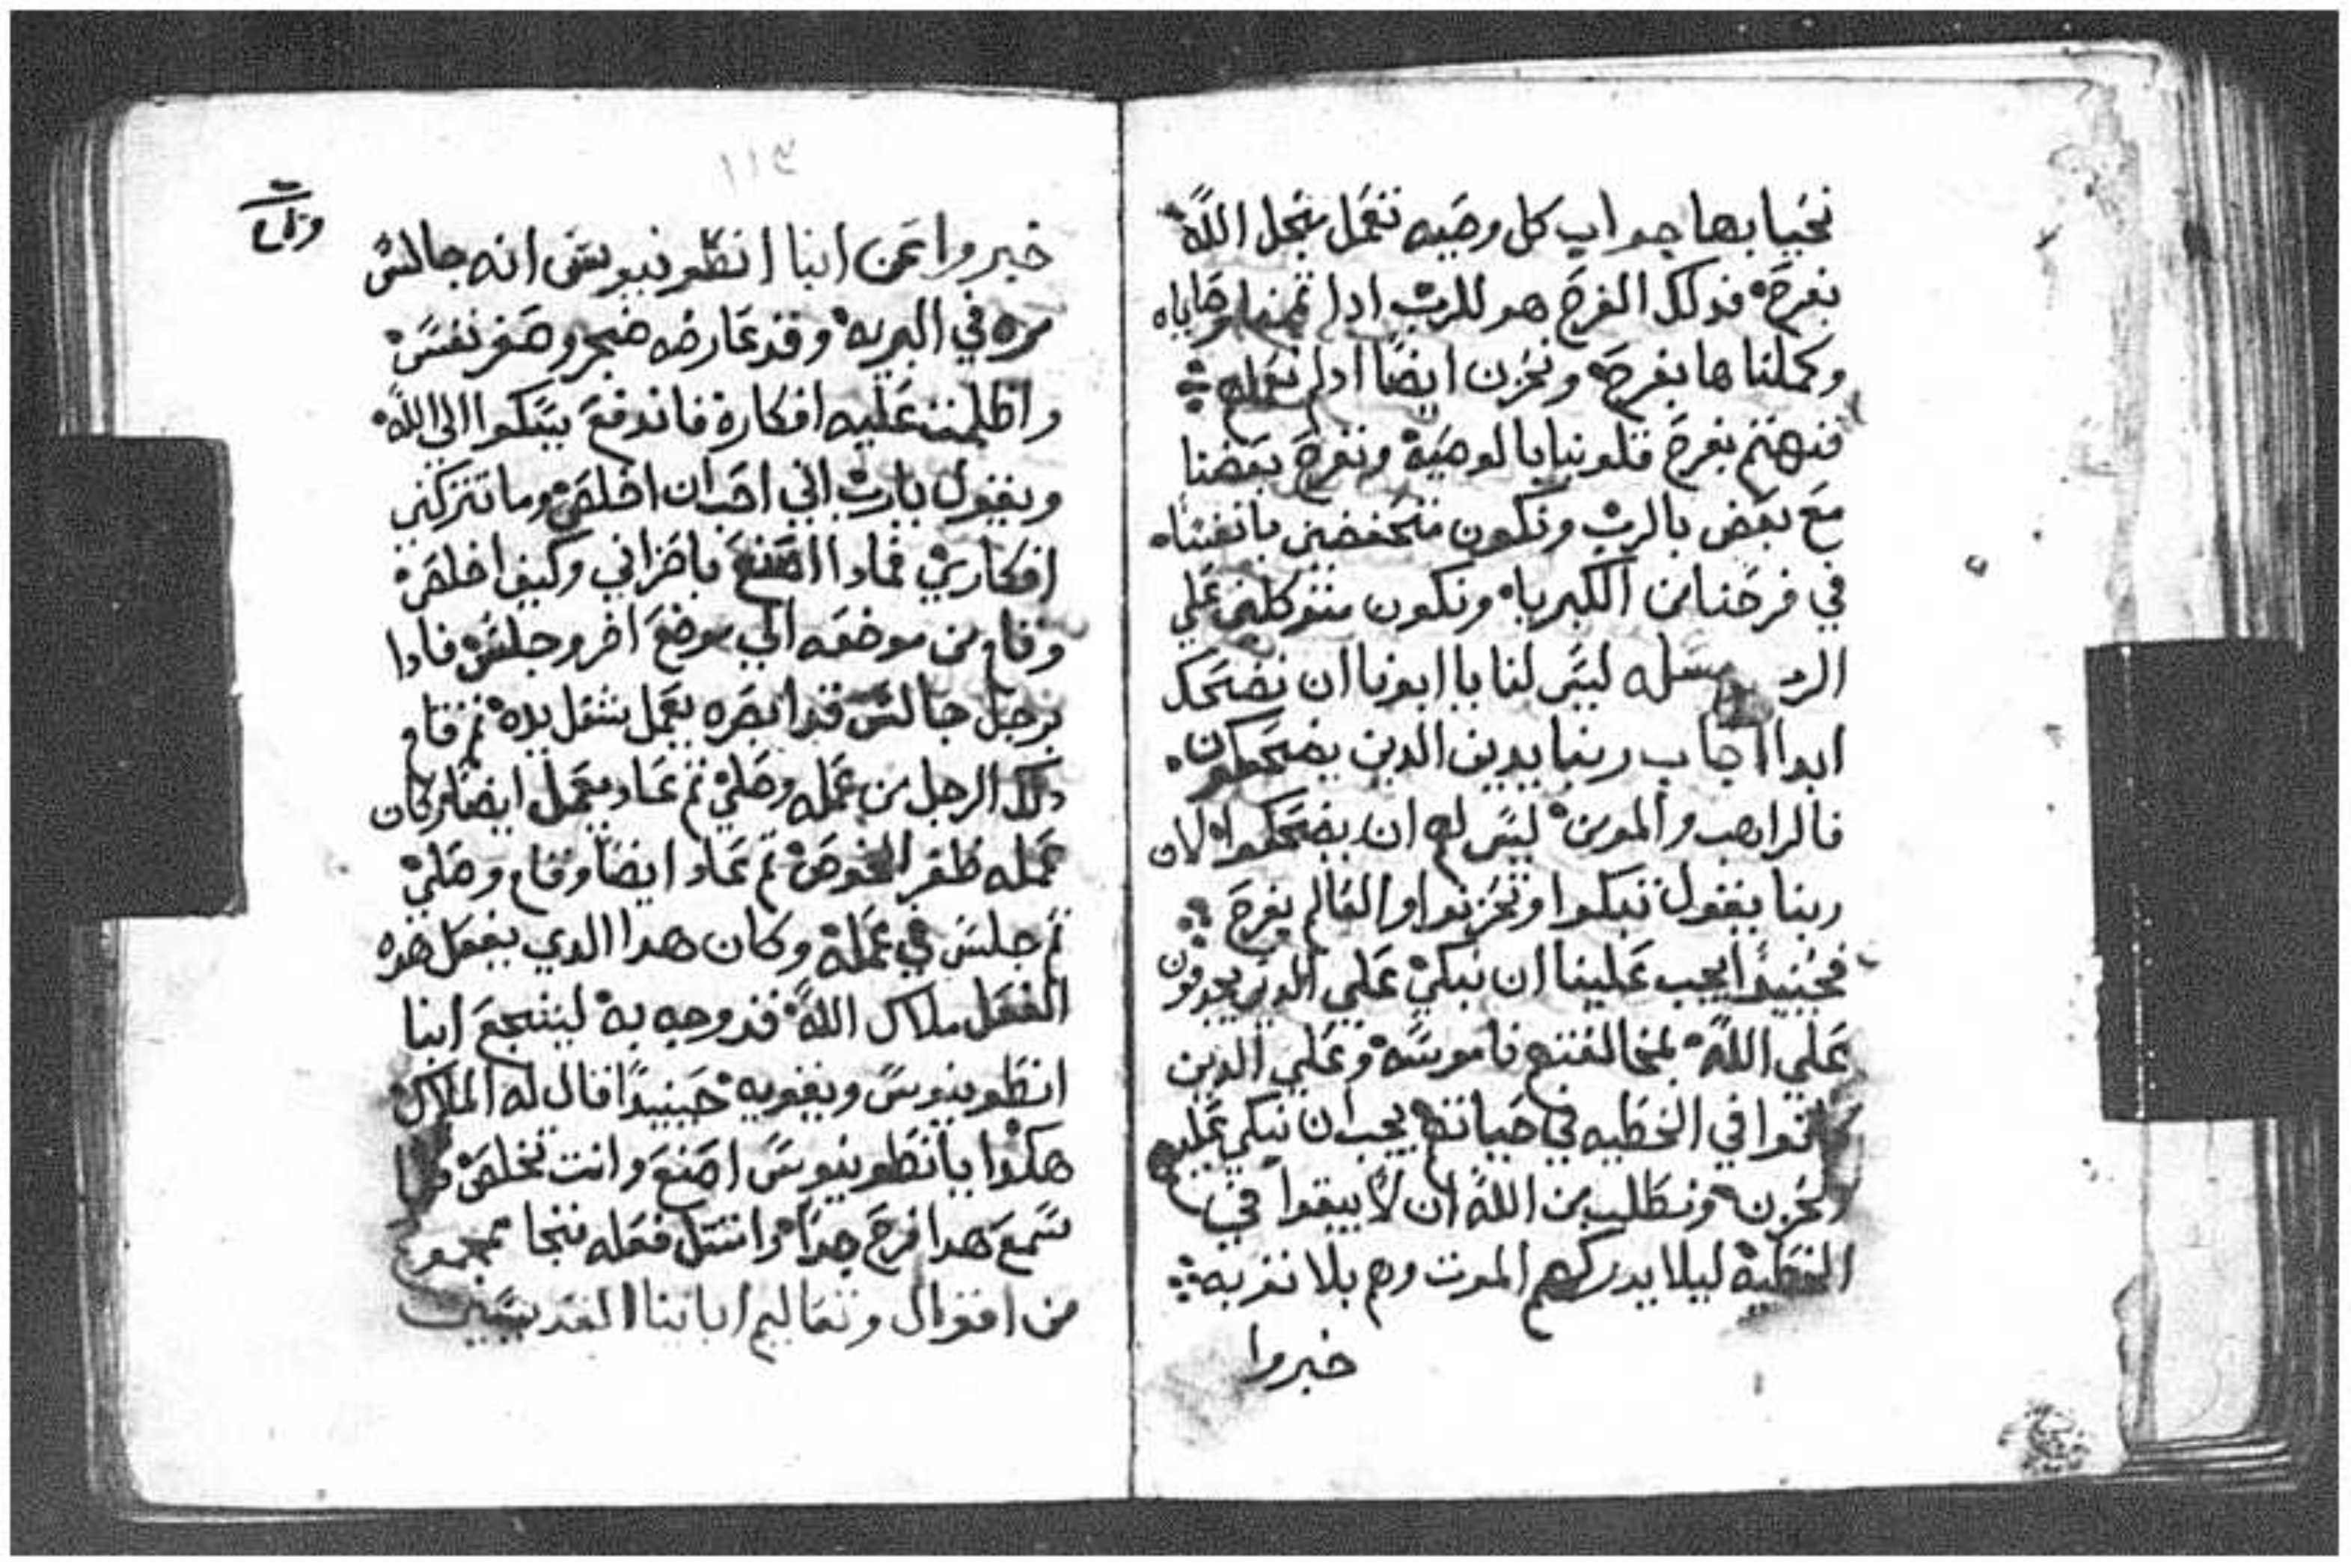 نحيا بها جواب كل وصيه نعمل نجل الله
بفرح فدلك الفرح هو للرب ادا تممنا وصاياه
وكملناها بفرح ونحزن ايضا ادا لم نعمله
فنهتم بفرح قلوبنا بالوصيه ونفرح بعضنا
مع بعض بالرب ونكون متحفضين بانفسنا
في فرحنا من الكبريا ونكون متوكلين علي
الرب مسله ليس لنا يا ابونا ان نضحك
ابدا اجاب ربنا يدين الدين يضحكون
فالراهب والمومن ليس لهم ان يضحكوا لان
ربنا يقول تبكوا وتحزنوا والعالم يفرح
فحينيدا يجب علينا ان نبكي علي الدين يجدفون
علي الله بمخالفتهم ناموسه وعلي الدين
كانوا في الخطيه في حياتهم يجب ان نبكي عليهم
ونحزن ونطلب من الله ان لا يبقوا في
الخطيه ليلا يدركهم الموت وهم بلا توبه
خبروا
١١٣
خبروا عن انبا انطونيوس انه جالس
مره في البريه وقد عارضه ضجر وصغر نفس
واظلمت عليه افكاره فاندفع يبكوا الي الله
ويقول يارب اني احب ان اخلص وما تتركني
افكاري فمادا اصنع باحزاني وكيف اخلص
وقام من موضعه الي موضع اخر وجلس فادا
برجل جالس قد ابصره يعمل بشغل يده ثم قام
دلك الرجل من عمله وصلي ثم عاد يعمل ايضا وكان
عمله ظفر الخوص ثم عاد ايضا وقام وصلي
ثم جلس في عمله وكان هدا الدي يفعل هده
الفعل ملاك الله قد وجه به ليشجع انبا
انطونيوس ويقويه حينيدا قال له الملاك
هكدا يا انطونيوس اصنع وانت تخلص فلما
سمع هدا فرح جدا وامتتل فعله فنجا
من اقوال وتعاليم اباينا القديسين